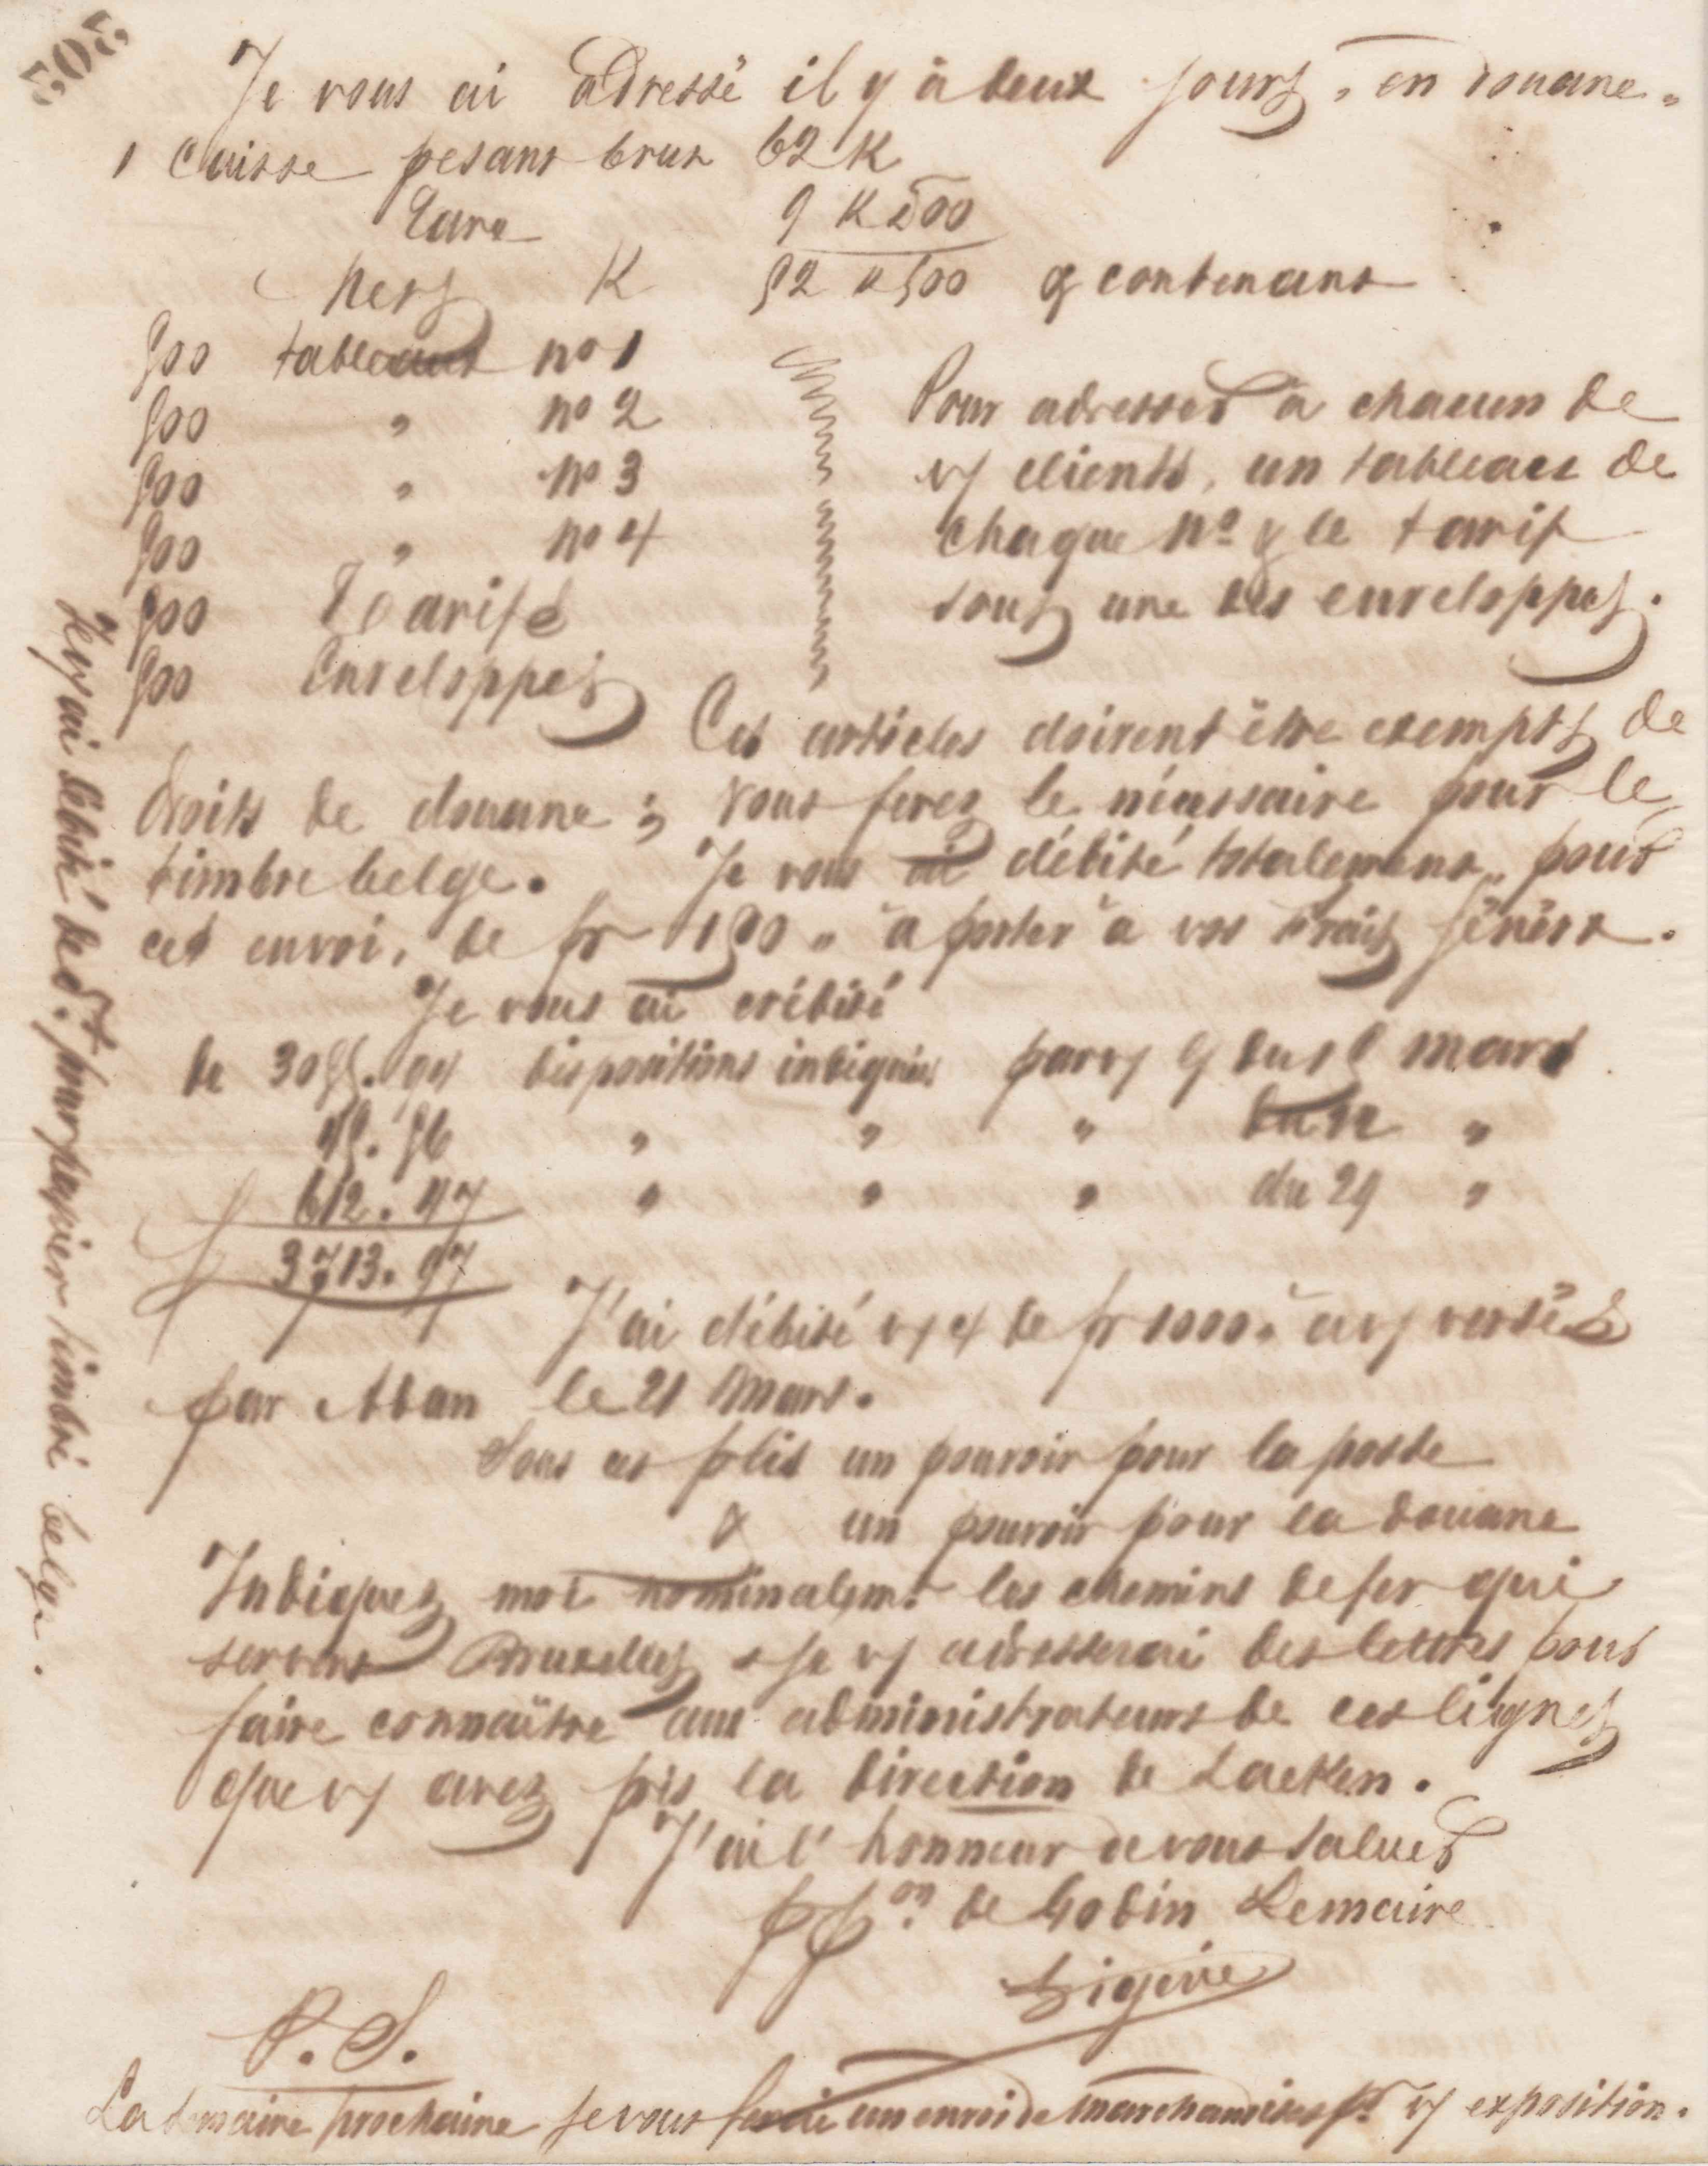 203
Je vous ai adressé il y à deux jours, en douane.
1 Caisse pesant brut 62 K
Tare 9 K 500
Nets K 52 K 500 & contenant
500 tableaux no 1
500 " no 2
500 " no 3
500 " no 4
500 Tarifs
500 Enveloppes
Pour adresser à chacun de
vs clients, un tableau de
chaque No & le tarif
sous une des enveloppes.
Ces articles doivent être exempts de
droits de douane ; vous ferez le nécessaire pour le
timbre belge. Je vous ai débité totalement, pour
cet envoi, de fr 190 " à porter à vos frais générx.
Je vous ai crédité
de 3055.94 dispositions indiquées par vs du 18 mars
45.56 " " " du 22 "
612.47 " " " du 29 "
3713.97
J'ai débité vs de fr 1000. à vs versés
par Aban le 21 Mars.
Sous ces plis un pouvoir pour la poste
& un pouvoir pour la douane
Indiquez moi nominalemt les chemins de fer qui
servent Bruxelles & je vs adresserai des lettres pour
faire connaître aux administrateurs de ces lignes
que vs avez pris la direction de Laeken.
J'ai l'honneur de vous saluer
ppon de Godin Lemaire
P. S.
La semaine prochaine je vous ferai un envoi de marchandises pr vs exposition.
Je vs ai débité de pour papier timbré belge.